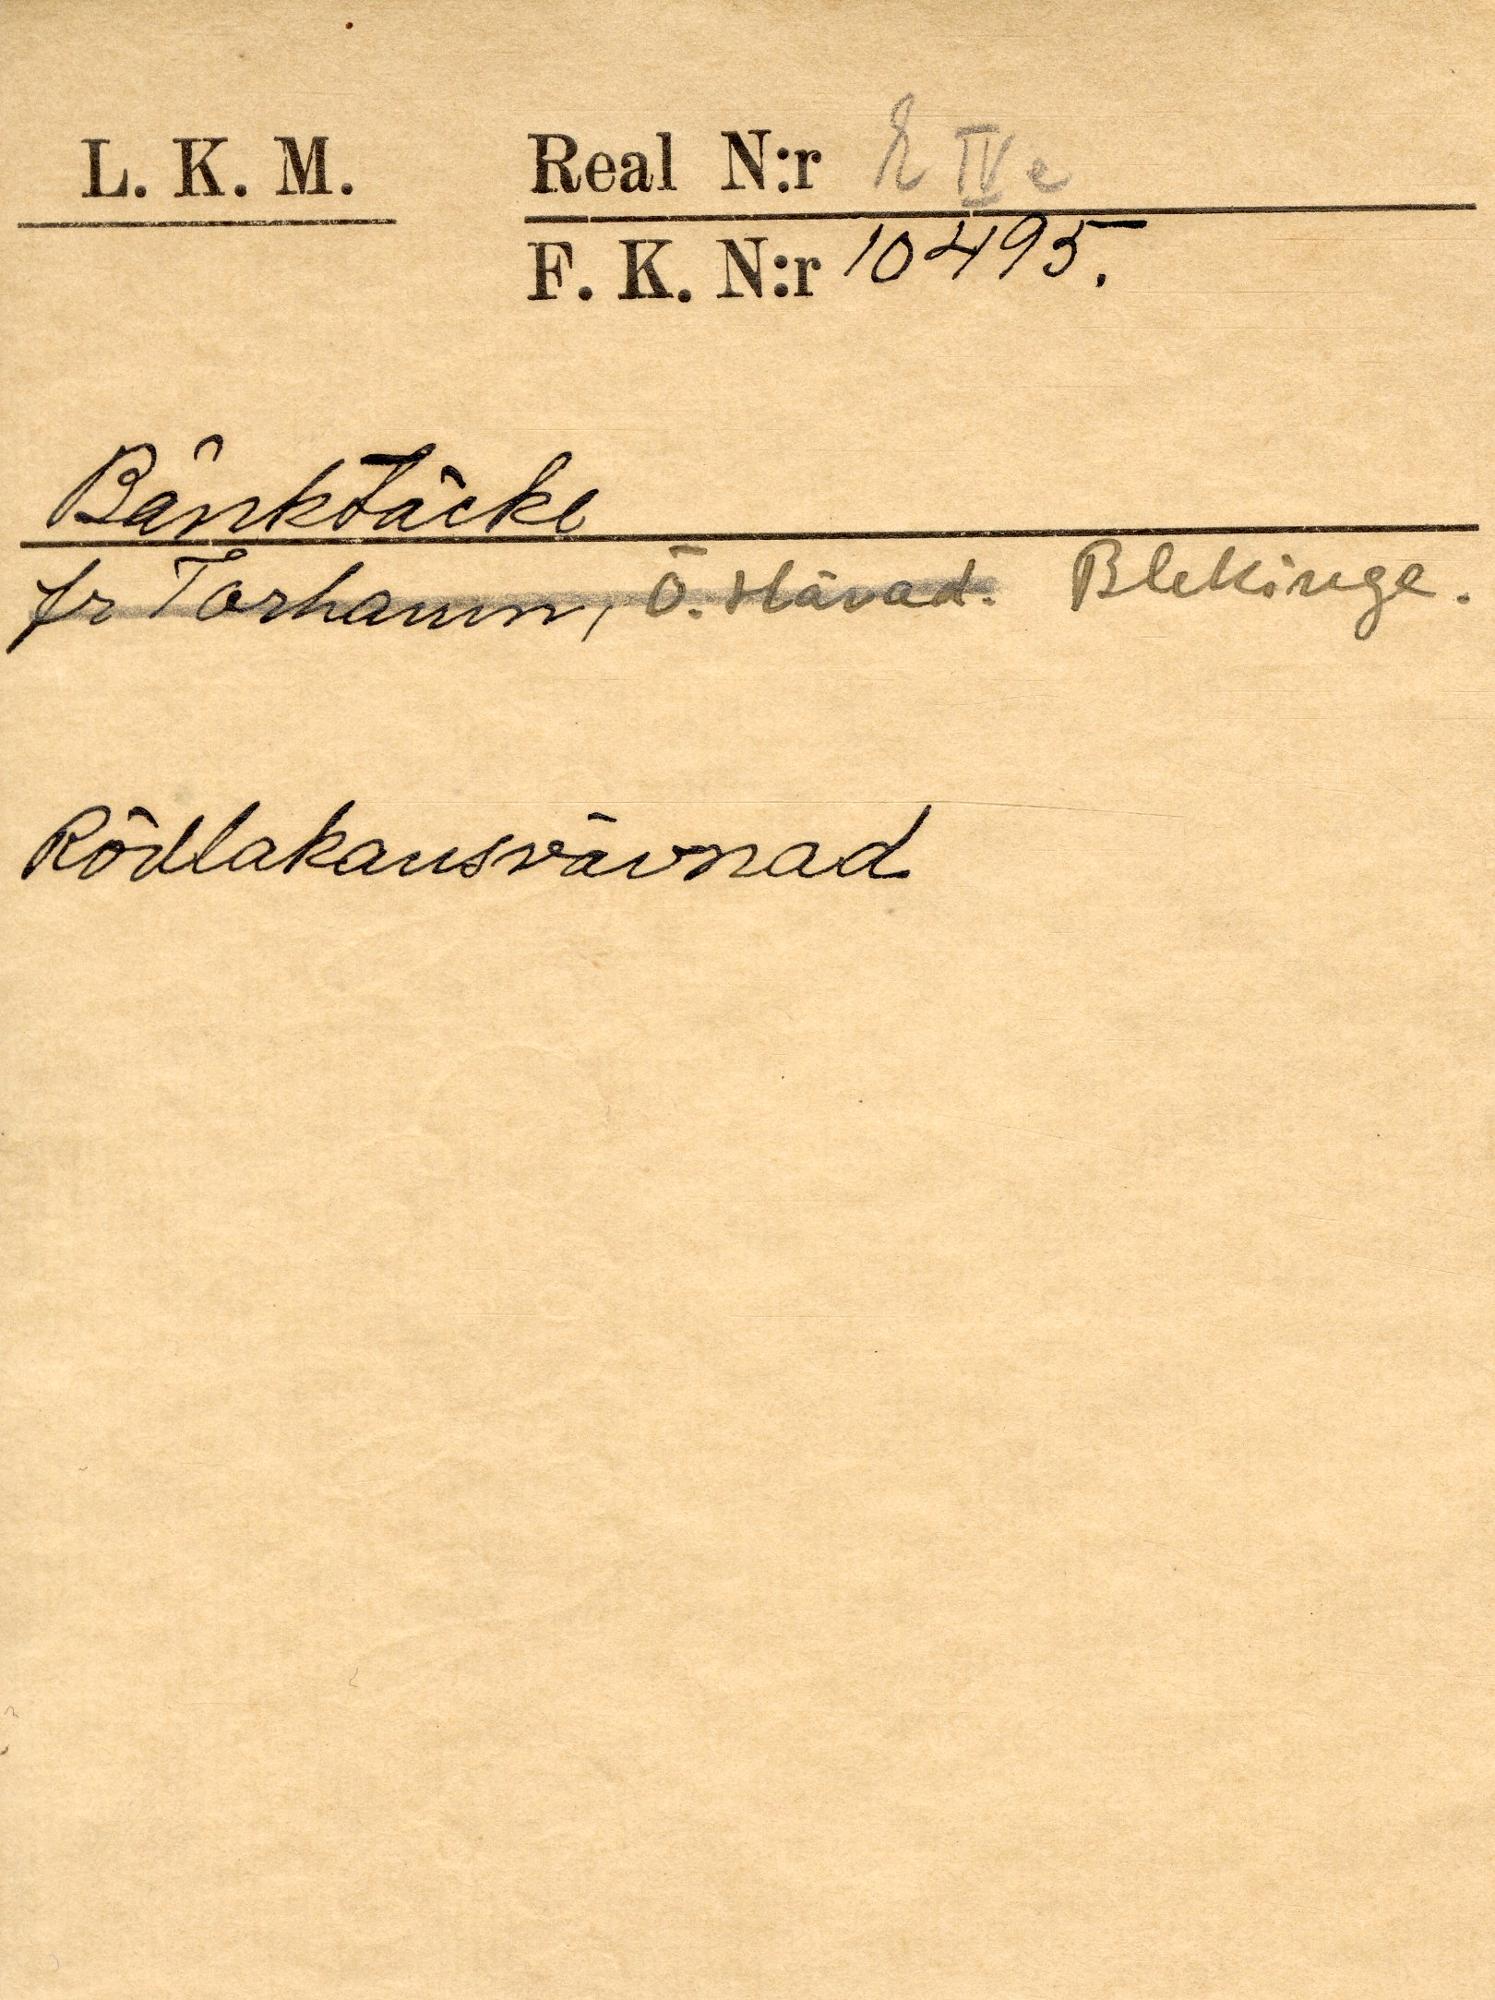 L. K. M. Real N:r E IV e
F. K. N:r 10495.
Bänktäcke
fr Torhamn, Ö. Härad. Blekinge.
Rödlakansvävnad